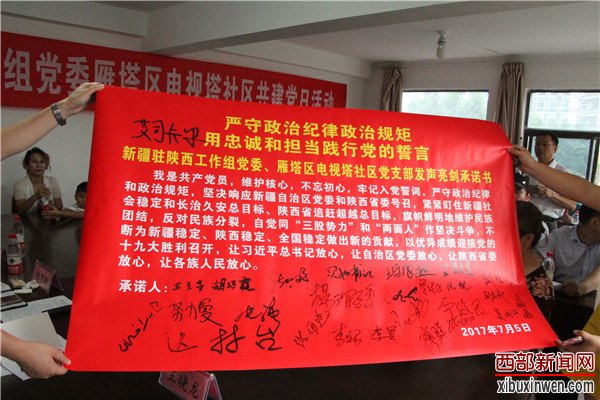 组党委雁塔区电视塔社区共建党日活动
严守政治纪律政治规矩
用忠诚和担当践行党的誓言
新疆驻陕西工作组党委、雁塔区电视塔社区党支部发声亮剑承诺书
我是共产党员，维护核心，不忘初心，牢记入党誓词，严守政治纪律
和政治规矩，坚决响应新疆自治区党委和陕西省委号召，紧紧盯住新疆社
会稳定和长治久安总目标、陕西省追赶超越总目标，旗帜鲜明地维护民族
团结，反对民族分裂，自觉同“三股势力”和“两面人”作坚决斗争，不
断为新疆稳定、陕西稳定、全国稳定做出新的贡献，以优异成绩迎接党的
十九大胜利召开，让习近平总书记放心，让自治区党委放心，让陕西省委
放心，让各族人民放心。
承诺人：
2017年7月5日
王晓龙
西部新闻网
xibuxinwen.com